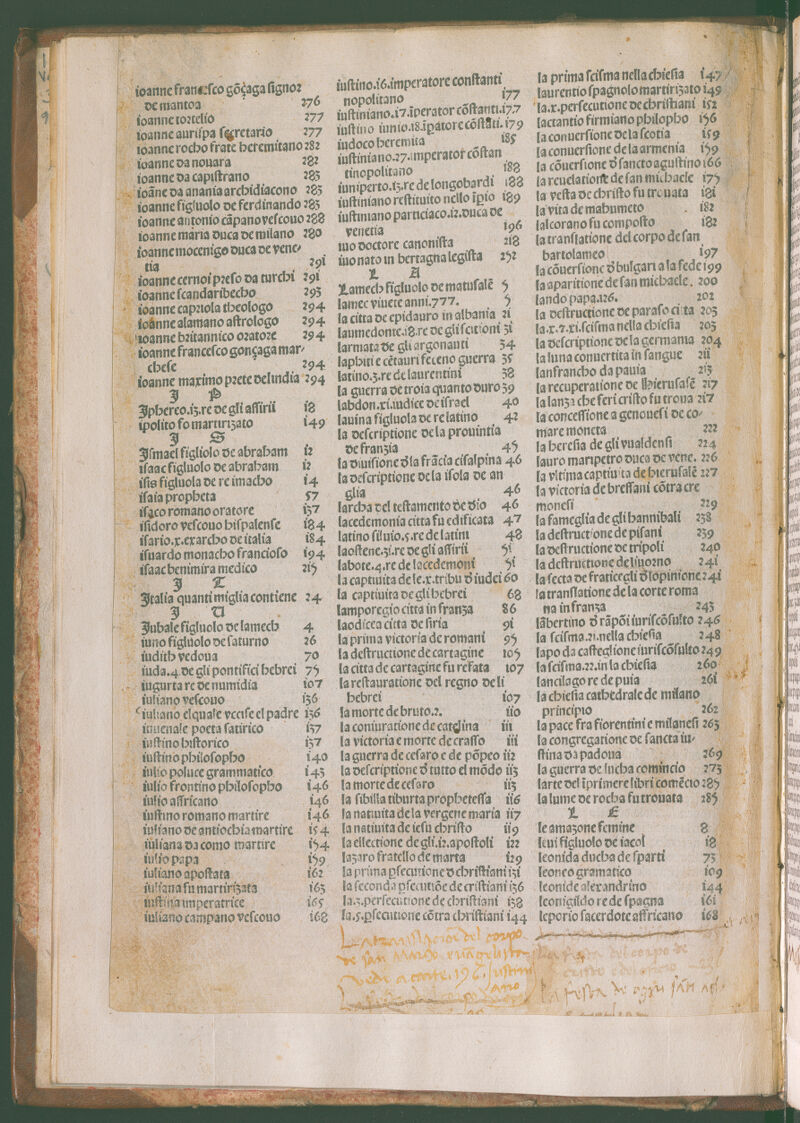 ioanne franceſco gõçaga ſignoꝛ
de mantoa 276
ioanne toꝛtelio 277
ioanne auriſpa ſecretario 277
ioanne rocho frate heremitano 282
ioanne da nouara 282
ioanne da capiſtrano 283
ioãne da anania archidiacono 283
ioanne figluolo de ferdinando 283
ioanne antonio cãpano veſcouo 288
ioanne maria duca de milano 280
ioanne mocenigo duca de vene⸗
tia 291
ioanne cernoi pꝛeſo da turchi 291
ioanne ſcandaribecho 293
ioanne capꝛiola theologo 294
ioanne alamano aſtrologo 294
ioanne bꝛitannico oꝛatoꝛe 294
ioanne franceſco gonçaga mar⸗
cheſe 294
ioanne maximo pꝛete delindia 294
J P
Jpherco.13.re de gli aſſirii 18
ipolito fo martirizato 149
J S
Jſmael figliolo de abraham 12
iſaac figluolo de abraham 12
iſis figluola de re imacho 14
iſaia propheta 57
iſaco romano oratore 137
iſidoro veſcouo hiſpalenſe 184
iſario.x.exarcho de italia 184
iſuardo monacho francioſo 194
iſaac benimira medico 215
J T
Jtalia quanti miglia contiene 24
J U
Jubale figluolo de lamech 4
iuno figluolo de ſaturno 26
iudith vedoua 70
iuda.4.de gli pontifici hebrei 75
iugurta re de numidia 107
iuliano veſcouo 136
iuliano elquale vcciſe el padre 136
iuuenale poeta ſatirico 137
iuſtino hiſtorico 137
iuſtino philoſopho 140
iulio poluce grammatico 143
iulio frontino philoſopho 146
iulio affricano 146
iuſtino romano martire 146
iuliano de antiochia martire 154
iuliana da como martire 154
iulio papa 159
iuliano apoſtata 162
iuliana fu martirizata 163
iuſtina imperatrice 165
iuliano campano veſcouo 168
iuſtino.16.imperatore conſtanti
nopolitano 177
iuſtiniano.17.ĩperator cõſtanti.177
iuſtino iunio.18.ĩpatore cõſtãti.179
iudoco heremita 185
iuſtiniano.27.imperator cõſtan
tinopolitano 188
iuniperto.13.re de longobardi 188
iuſtiniano reſtituito nello ĩpio 189
iuſtiniano particiaco.12.duca de
venetia 196
iuo doctore canoniſta 218
iuo nato in bertagna legiſta 252
L A
Lamech figluolo de matuſalẽ 5
lamec viuete anni.777. 5
la citta de epidauro in albania 21
laumedonte.18.re de gli ſcitioni 31
larmata de gli argonauti 34
laphiti e cẽtauri feceno guerra 35
latino.3.re de laurentini 38
la guerra de troia quanto duro 39
labdon.xi.iudice de iſrael 40
lauina figluola de re latino 42
la deſcriptione de la prouintia
de franzia 45
la diuiſione ð la frãcia ciſalpina 46
la deſcriptione de la iſola de an
glia 46
larcha del teſtamento de dio 46
lacedemonia citta fu edificata 47
latino ſiluio.5.re de latini 48
laoſtene.31.re de gli aſſirii 51
labote.4.re de lacedemoni 51
la captiuita de le.x.tribu ð iudei 60
la captiuita de gli hebrei 68
lamporegio citta in franza 86
laodicea citta de ſiria 91
la prima victoria de romani 95
la deſtructione de cartagine 105
la citta de cartagine fu refata 107
la reſtauratione del regno de li
hebrei 107
la morte de bruto.2. 110
la coniuratione de catelina 111
la victoria e morte de craſſo 111
la guerra de ceſaro e de põpeo 112
la deſcriptione ð tutto el mõdo 113
la morte de ceſaro 113
la ſibilla tiburta propheteſſa 116
la natiuita de la vergene maria 117
la natiuita de ieſu chriſto 119
la ellectione de gli.12.apoſtoli 122
lazaro fratello de marta 129
la prima ꝑſecutione ð chriſtiani 131
la ſeconda ꝑſecutiõe de criſtiani 136
la.3.perſecutione de chriſtiani 138
la.5.ꝑſecutione cõtra chriſtiani 144
la prima ſciſma nella chieſia 147
laurentio ſpagnolo martirizato 149
la.x.perſecutione de chriſtiani 152
lactantio firmiano philopho 156
la conuerſione de la ſcotia 159
la conuerſione de la armenia 159
la cõuerſione ð ſancto aguſtino 166
la reuelatione de ſan michaele 175
la veſta de chriſto fu trouata 181
la vita de mahumeto 182
lalcorano fu compoſto 182
la tranſlatione del corpo de ſan
bartolameo 197
la cõuerſione ð bulgari a la fede 199
la aparitione de ſan michaele. 200
lando papa.126. 202
la deſtructione de parafo citta 203
la.x.7.xi.ſciſma nella chieſia 203
la deſcriptione de la germania 204
la luna conuertita in ſangue 211
lanfrancho da pauia 213
la recuperatione de Hieruſalẽ 217
la lanza che feri criſto fu troua 217
la conceſſione a genoueſi de co⸗
mare moneta 222
la hereſia de gli vualdenſi 224
lauro maripetro duca de vene. 226
la vltima captiuita de hieruſalẽ 227
la victoria de breſſani cõtra cre
moneſi 229
la fameglia de gli hannibali 238
la deſtructione de piſani 239
la deſtructione de tripoli 240
la deſtructione de liuorno 241
la ſecta de fraticegli ð lopinione 241
la tranſlatione de la corte roma
na in franza 243
lãbertino ð rãpõi iuriſcõſulto 246
la ſciſma.21.nella chieſia 248
lapo da caſteglione iuriſcõſulto 249
la ſciſma.22.in la chieſia 260
lancilago re de puia 261
la chieſia cathedrale de milano
principio 262
la pace fra fiorentini e milaneſi 263
la congregatione de ſancta iu⸗
ſtina da padoua 269
la guerra de lucha comincio 273
larte del ĩprimere libri comẽcio 285
la lume de rocha fu trouata 285
L E
le amazone femine 8
leui figluolo de iacol 18
leonida ducha de ſparti 73
leoneo gramatico 109
leonide alexandrino 144
leonigildo re de ſpagna 161
leporio ſacerdote affricano 168
La tranſlatione del corpo
de ſan Marco euangeliſta
vede a carte. 196.
la feſta del corpo de
criſto
La feſta de ogni ſan